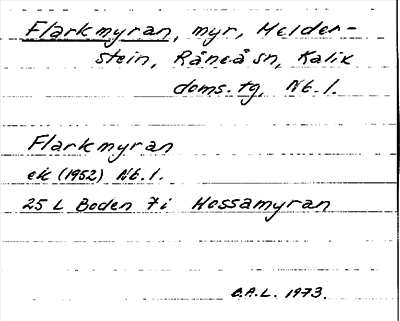 Flarkmyran, myr, Melder-
stein, Råneå sn, Kalix
doms. tg, Nb. l.
Flarkmyran
ek (1952) Nb. l.
25 L Boden 7i Hossamyran
O.A.L. 1973.